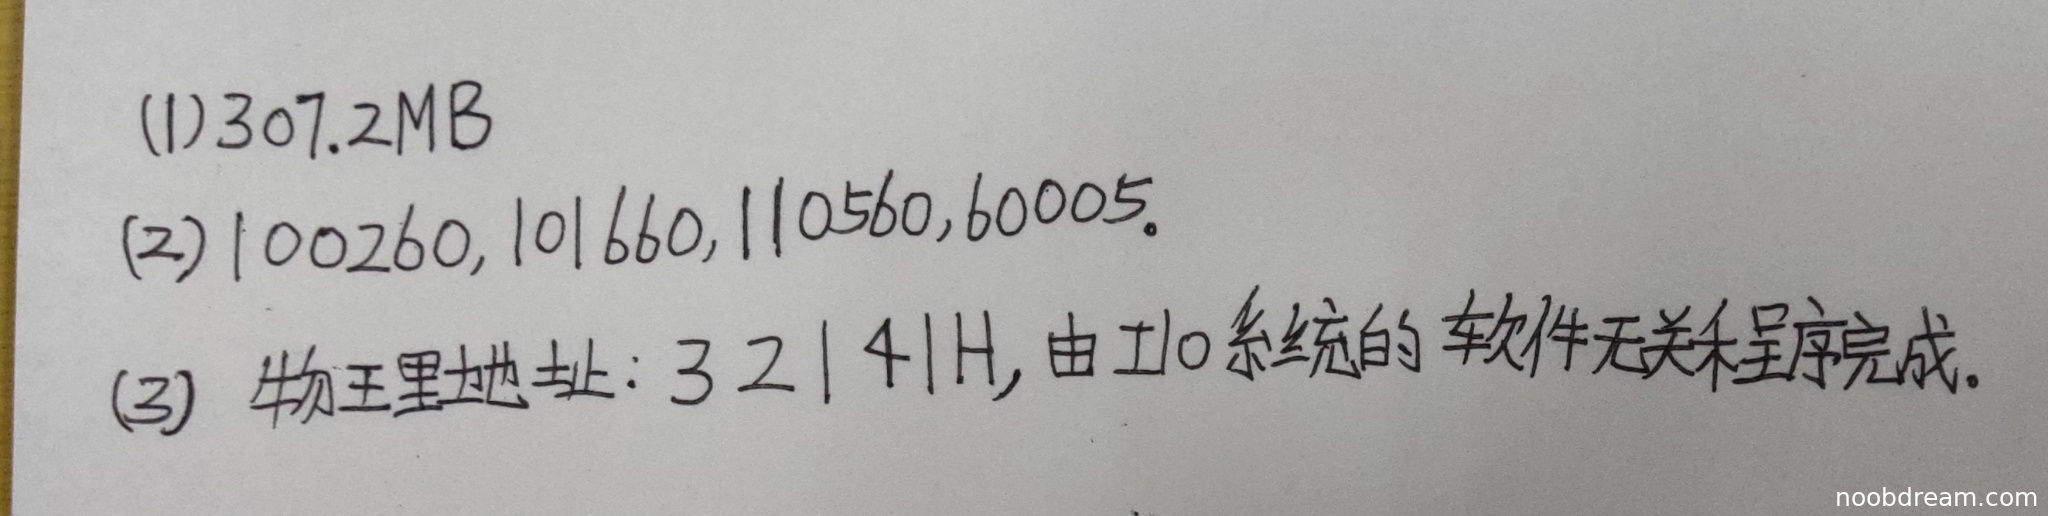 (1) 307.2MB
(2) 100260, 101660, 110560, 60005.
(3) 物理地址: 32141H, 由I/O系统的软件无关程序完成.
noobdream.com